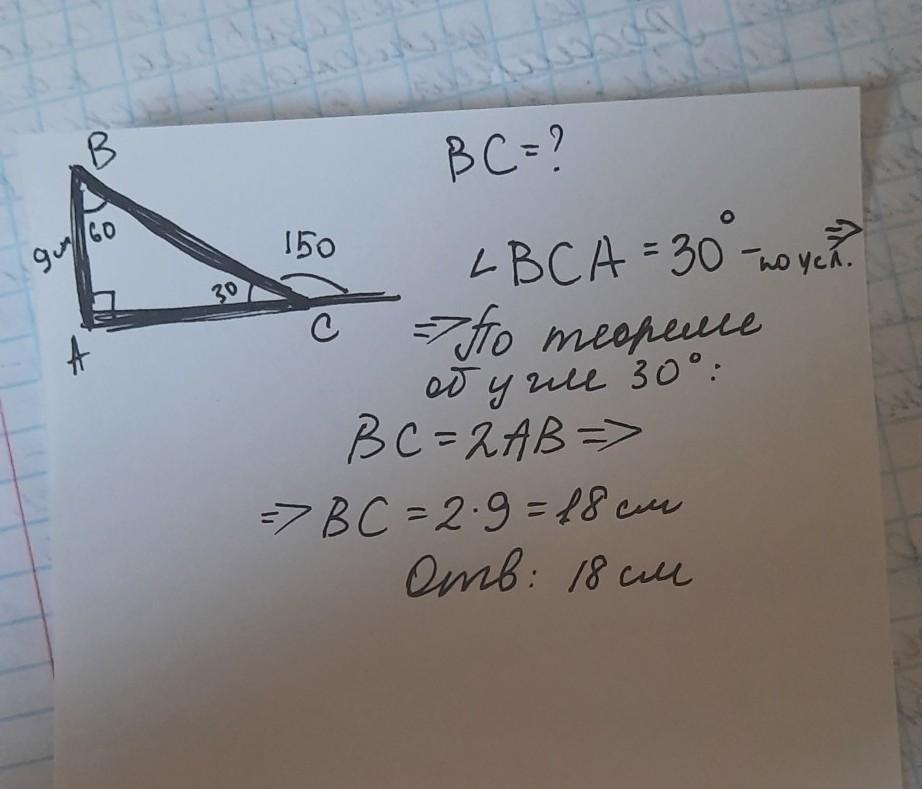 B
BC=?
60
9см
150
30
C
A
∠BCA = 30° - по усл. ⇒
⇒ По теореме
об угле 30°:
BC = 2AB ⇒
⇒ BC = 2·9 = 18 см
Отв: 18 см